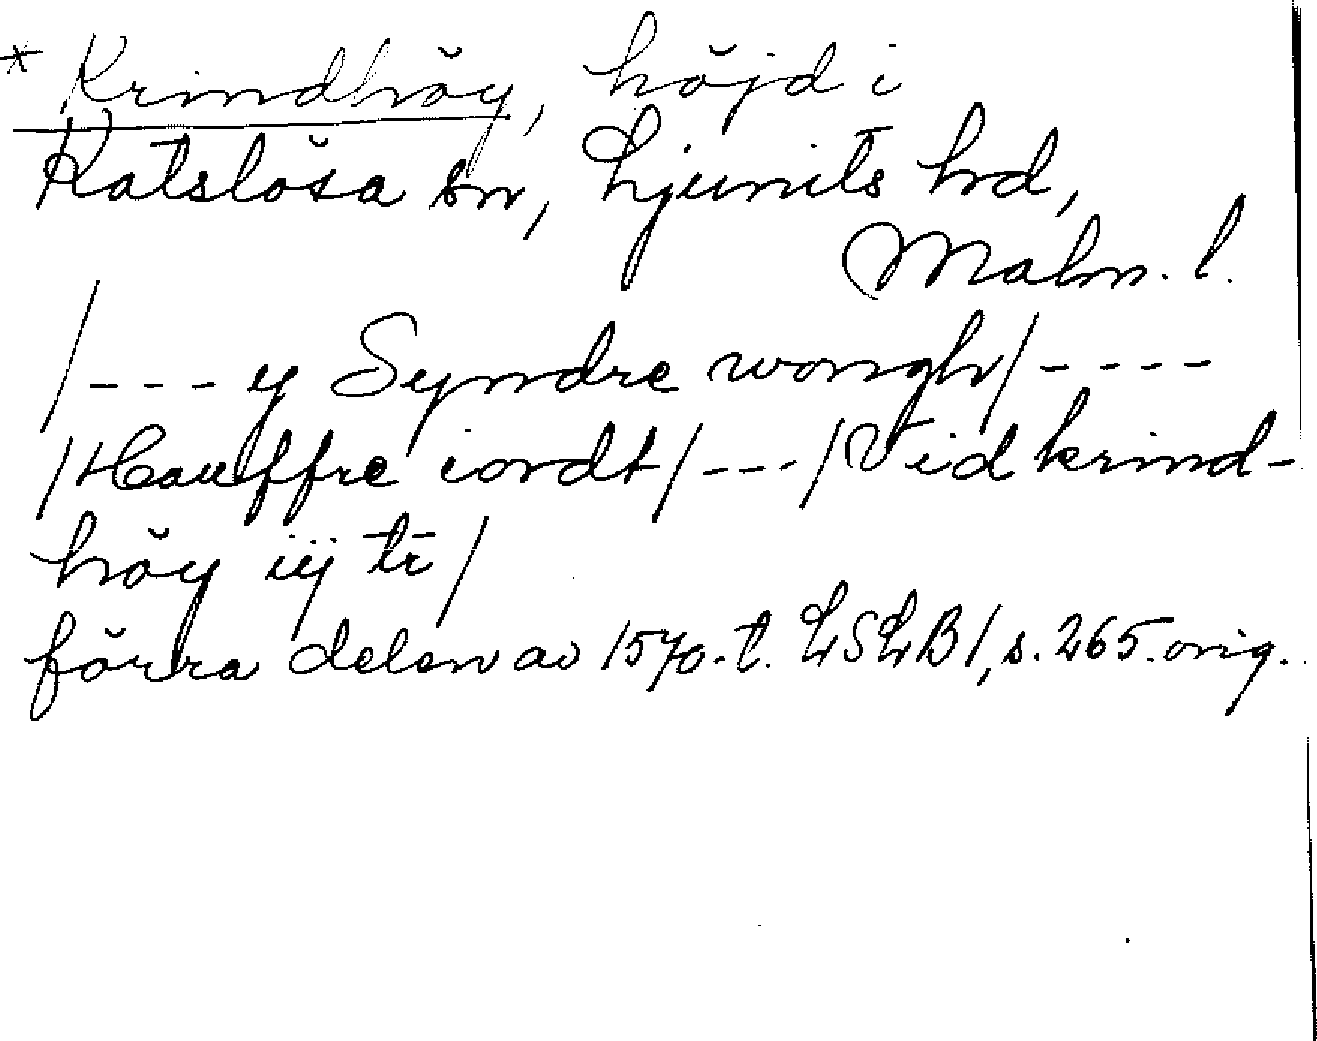 * Krindhöy, höjd i
Katslösa sn, Ljunits hd,
Malm. l.
/---y Syndre wongh/----
/Hauffre iordt/---/Vid krind-
höy iij tr̄/
förra delen av 1570-t. LSLB1, s. 265. orig.